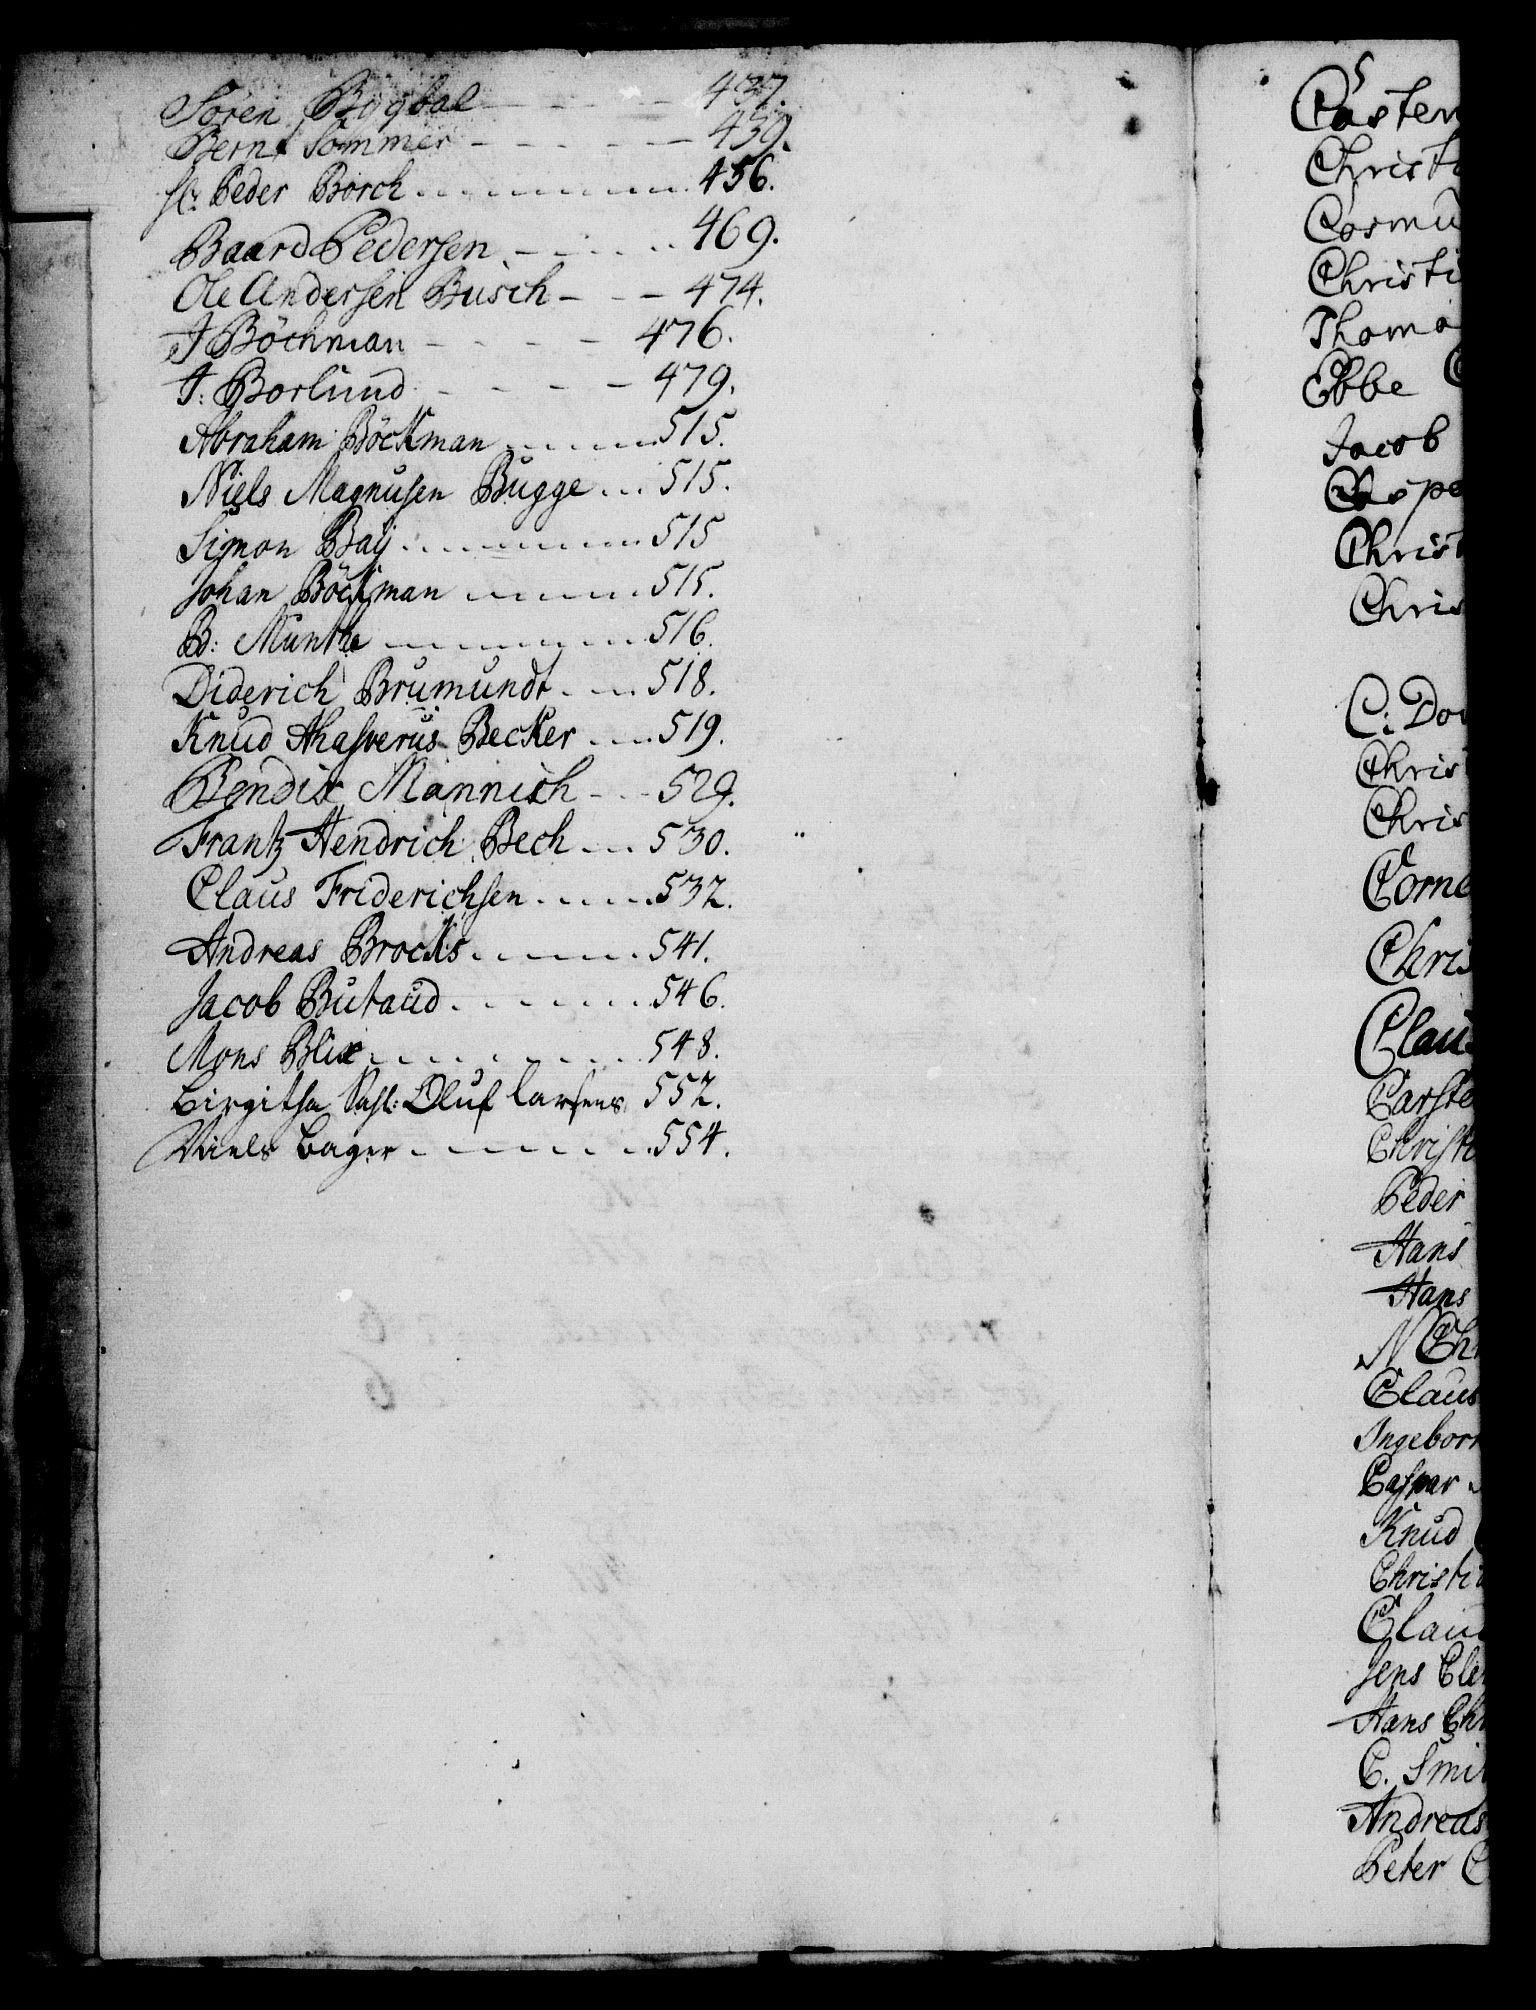 Søren Bygbal - - - - - 437.
Bernt Sommer - - - - - 459.
Sl: Peder Borch ........ 456.
Baard Pedersen - - .... 469.
Ole Andersen Busch - - - 474.
J Böchman - - - - 476.
J: Borlund - - - - 479.
Abraham Böckman ...... 515.
Niels Magnusen Bugge ... 515.
Simon Baÿ ......... 515
Johan Böckman ...... 515.
B: Munthe ......... 516.
Diderich Brumundt .... 518.
Knud Ahasverus Becker .... 519.
Bendix Mannich - - - 529.
Frantz Hendrich Bech .... 530.
Claus Friderichsen ..... 532.
Andreas Brocks ...... 541.
Jacob Butaud ....... 546.
Mons Blix ......... 548.
Birgitha Sahl: Oluf Larsens 552.
Niels Bager ........ 554.
5
Casten
Christ
Cosmu
Christi
Thoma
Ebbe C
Jacob
Caspe
Christ
Chris
C: Do
Christ
Chris
Corne
Chris
Claus
Carste
Christ
Peder
Hans
Hans
N Ch
Claus
Ingebor
Caspar
Knud
Christi
Clau
Jens Cle
Hans Ch
C. Smi
Andreas
Peter C